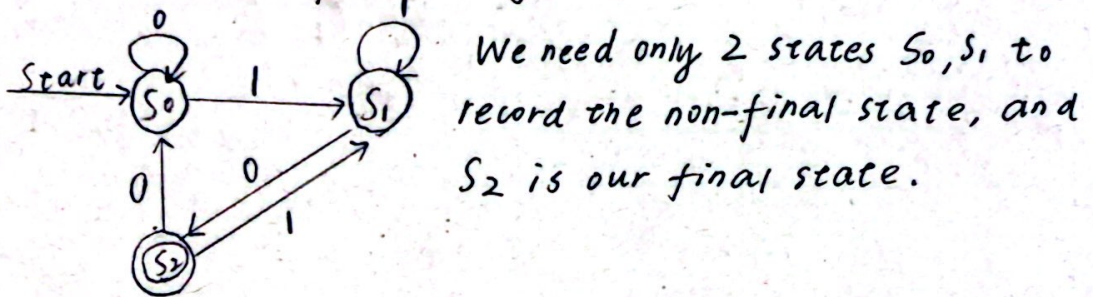 0
Start
S0
1
S1
We need only 2 states S0, S1 to
record the non-final state, and
S2 is our final state.
0
0
1
S2